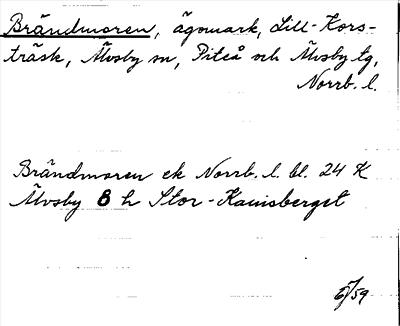 Brändmoren, ägomark, Lill-Kors-
träsk, Älvsby sn, Piteå och Älvsby tg,
Norrb. l.
Brändmoren ek Norrb. l. bl. 24 K
Älvsby 8 h Stor-Kauisberget
6/7 59